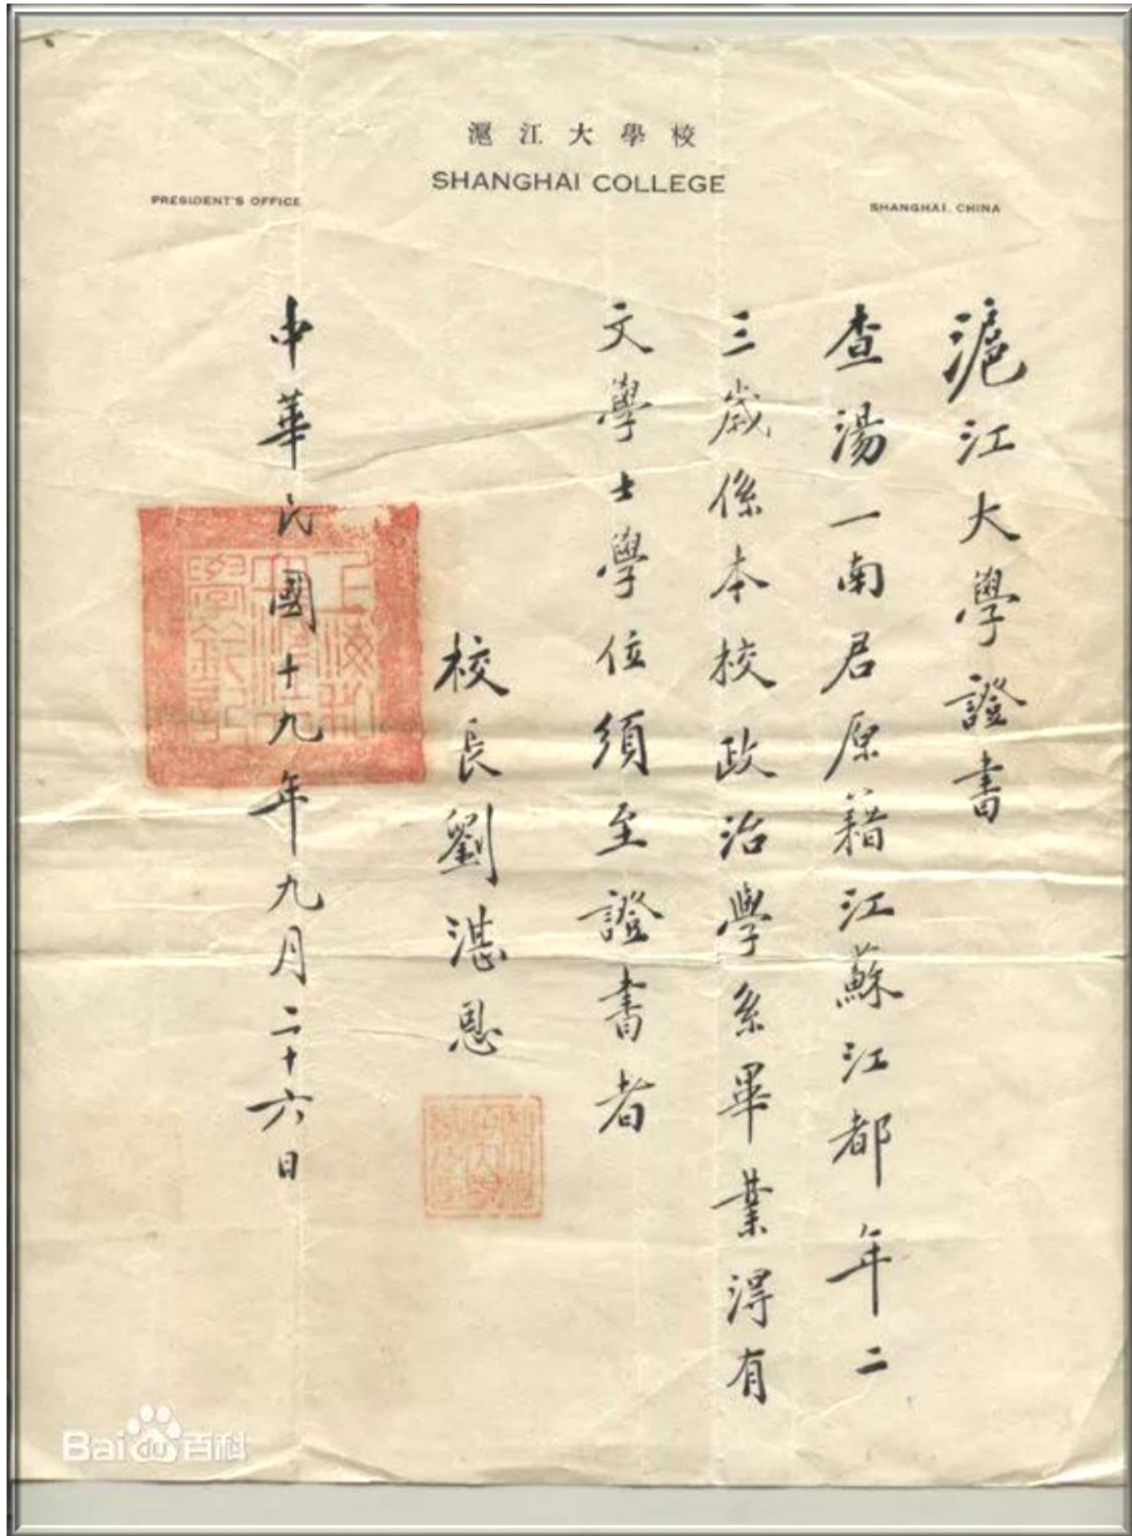 滬江大學校
SHANGHAI COLLEGE
PRESIDENT'S OFFICE
SHANGHAI, CHINA
滬江大學證書
查湯一南君原籍江蘇江都年二
三歲係本校政治學系畢業得有
文學士學位須至證書者
校長劉湛恩
中華民國十九年九月二十六日
Baidu百科